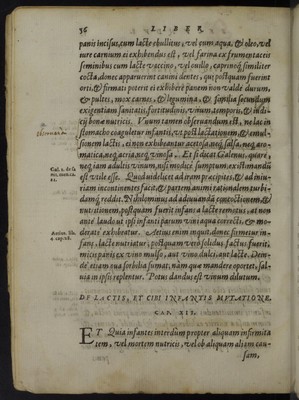 36 LIBER
panis incisus, cum lacte ebullitus, vel cum aqua, & oleo, vel
iure carnium ei exhibendus est, vel farina ex frumentaceis
seminibus cum lacte vaccino, vel ovillo, caprinoq; similiter
cocta, donec apparuerint canini dentes, qui postquam fuerint
orti, & firmati poterit ei exhiberi panem non valde durum,
& pultes, mox carnes, & legumina, & similia secundum
exigentiam sanitatis, fortitudinis, virium, temporis, & indi
cij bonæ nutricis. Vnum tamen observandum est, ne lac in
stomacho coaguletur infantis, vt post lactationem, & emul-
sionem lactis, ei non exhibeantur acetosa, neq; salsa, neq; aro-
matica, neq; acria, neq; vinosa. Et si dicat Galenus, quare,
neq; iam adultis vinum, nisi modicè sumptum ex istimandũ
est vtile esse. Quod videlicet ad iram præcipites, & ad iniu-
riam incontinentes facit, & partem animi rationalem turbi-
Gal. 1. de sa
dam reddit. Nihilominus ad adeuuandã concoctionem, &
nutritionem, postquam fuerit infans à lacte remotus, at non
antè laudo ut ipsi infanti parum vini aqua correcti, & mo-
deratè exhibeatur. Aetius enim inquit, donec firmetur in-
fans, lacte nutriatur, postquam verò solidus factus fuerit,
mica panis ex vino mulso, aut vino dulci, aut lacte. Dein-
de etiam oua sorbilia sumat, nam quæ mandere oportet, sali-
ua in ipsis repleantur. Potus dandus est vinum dilutum.
DE LACTIS, ET CIBI INFANTIS MVTATIONE.
CAP. XII.
ET Quia infantes interdum propter aliquam infirmita
tem, vel mortem nutricis, vel ob aliquam aliam cau-
sam,